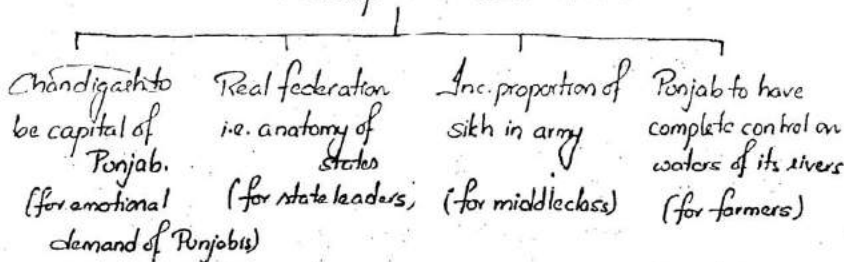 Chandigarh to
be capital of
Punjab.
(for emotional
demand of Punjabis)
Real federation
i.e. anatomy of
states
(for state leaders)
Inc. proportion of
sikh in army
(for middle class)
Punjab to have
complete control on
waters of its rivers
(for farmers)